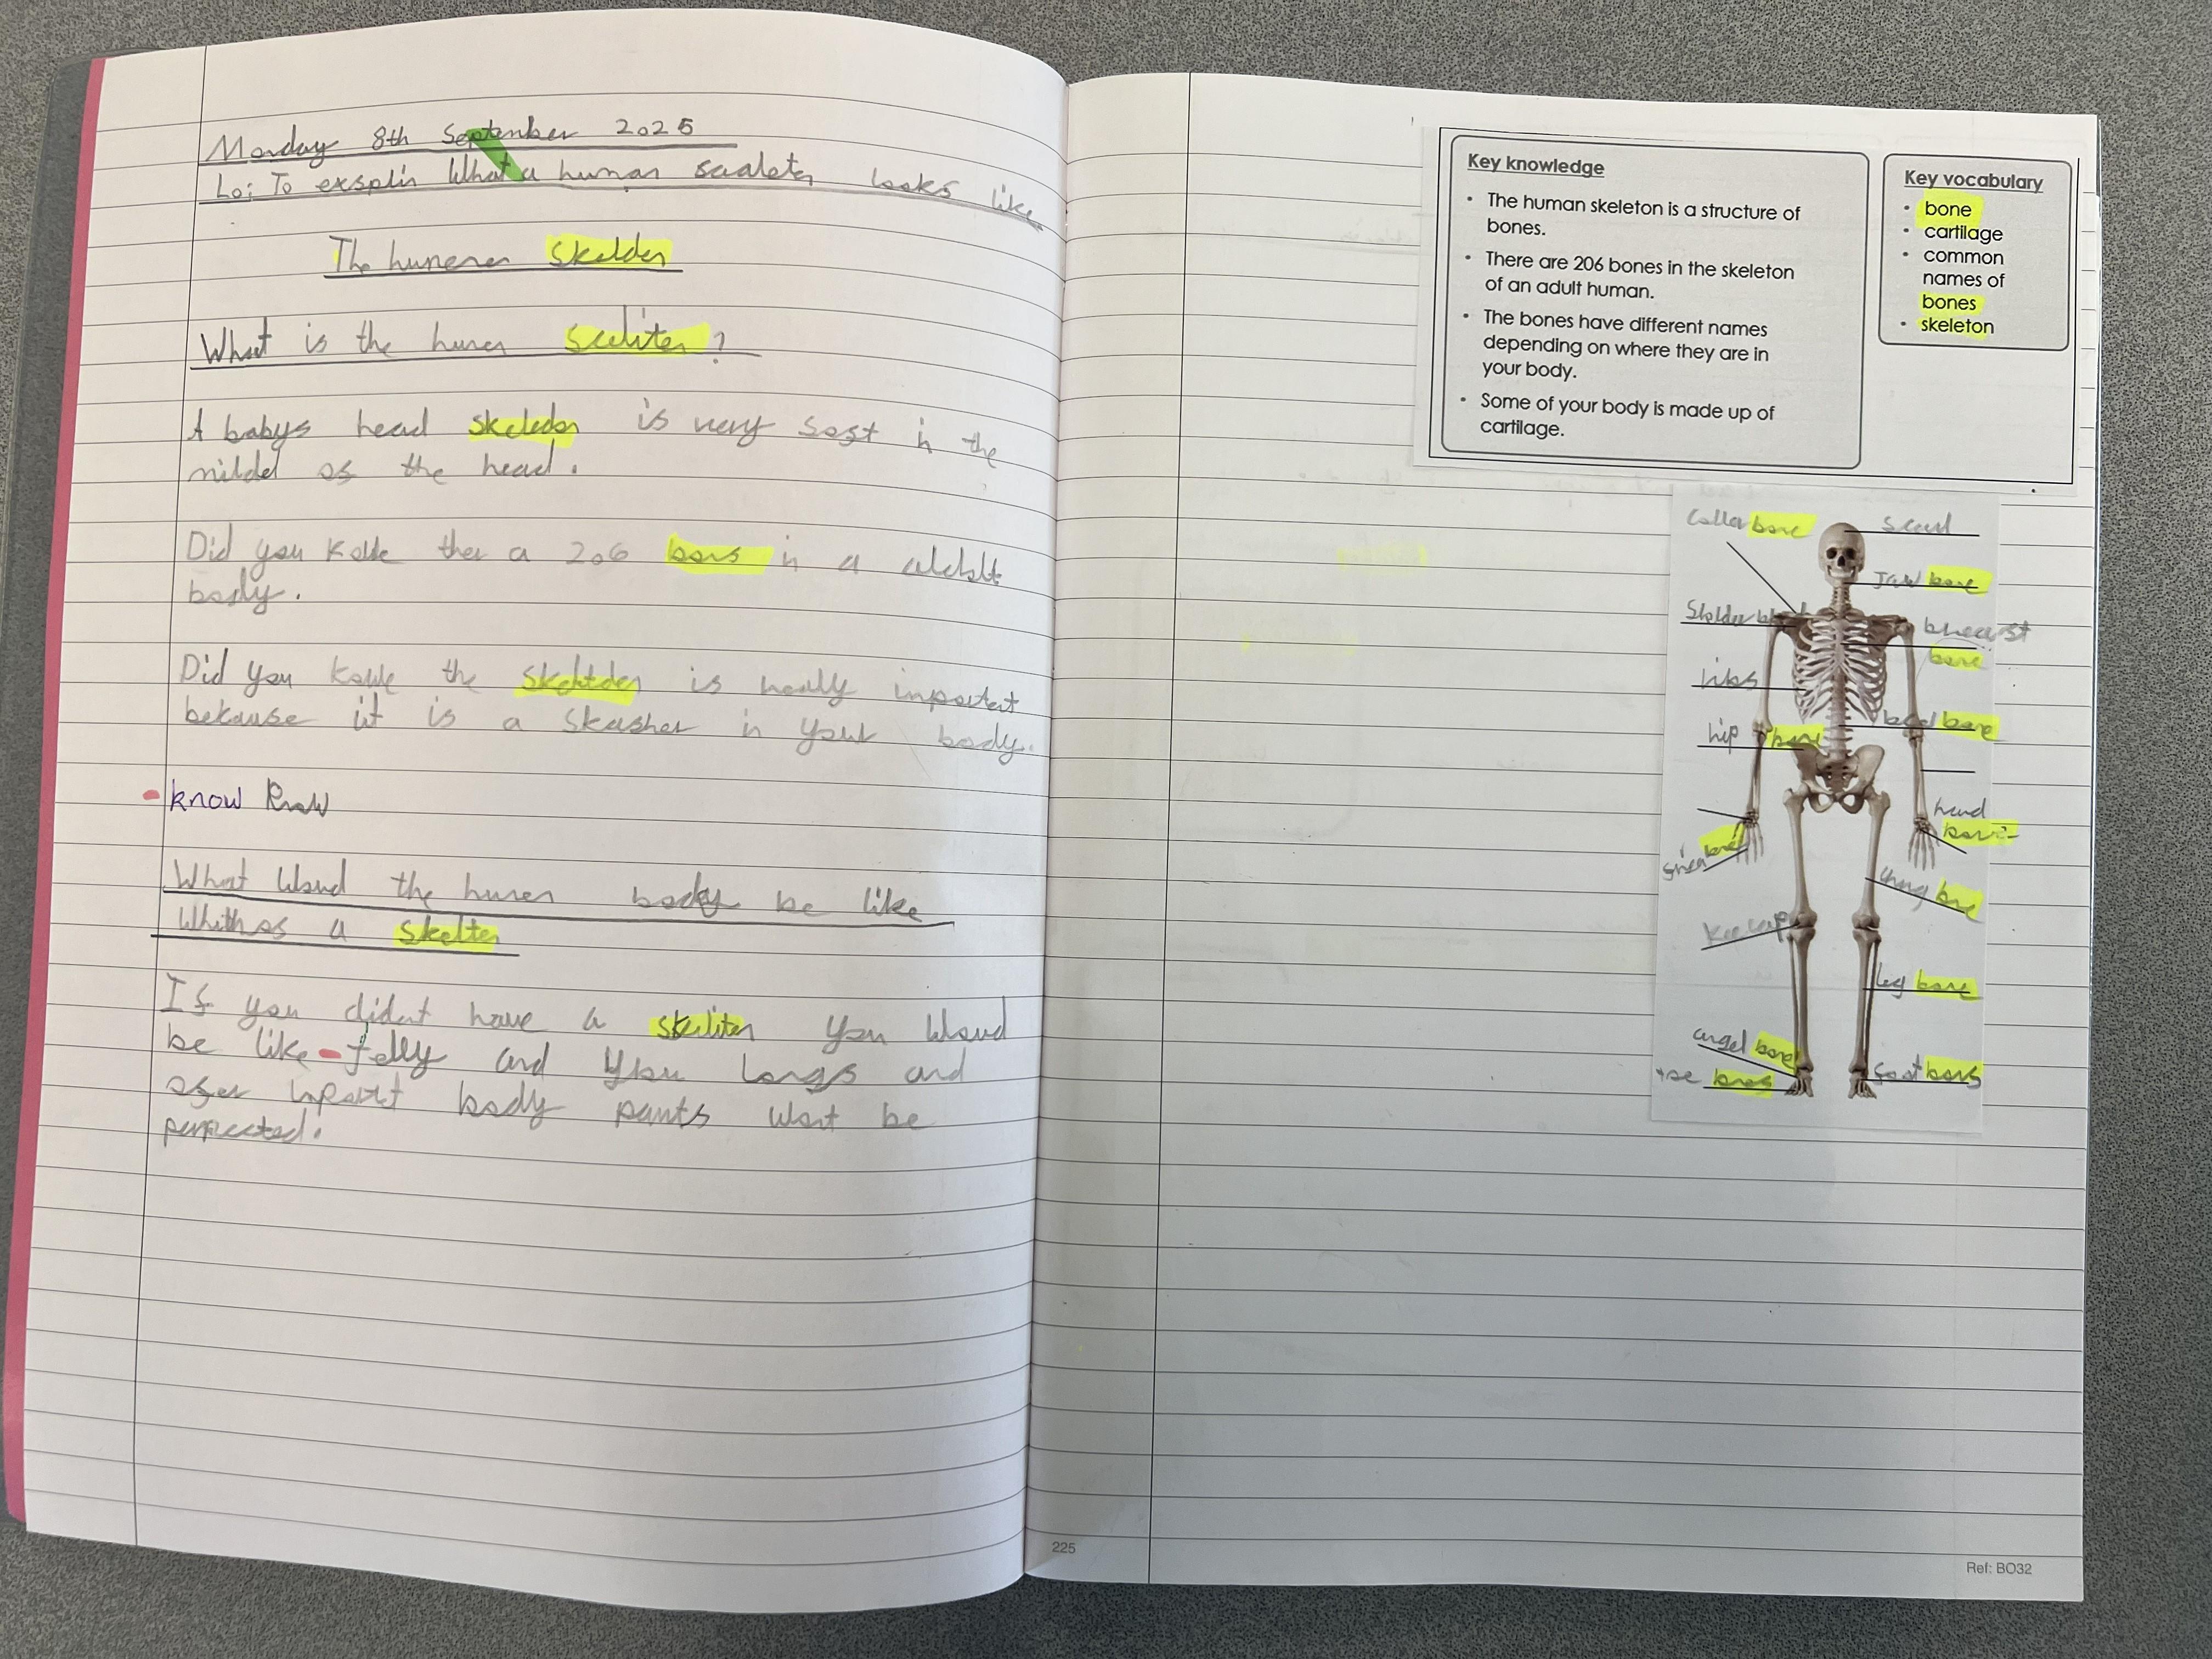 Monday 8th September 2025
Lo: To exsplin What a human scaleten looks like
The humenen skelden
What is the humen sceliten?
A babys head skeleden is very sost in the
middel os the head.
Did you kowe ther a 206 bons in a aleblt
body.
Did you kowe the skeltden is really importent
bekause iit is a skasher in your body.
know know
What Woud the humen body be like
Whithos a skelten
Is you didnt have a skeliten you Woud
be like Jelly and you Longs and
oser inportt body parts Wont be
perpected.
225
Key knowledge
• The human skeleton is a structure of
bones.
• There are 206 bones in the skeleton
of an adult human.
• The bones have different names
depending on where they are in
your body.
• Some of your body is made up of
cartilage.
Key vocabulary
• bone
• cartilage
• common
names of
bones
• skeleton
Coller bone
scaul
Jaw bone
Sholder
breast
bone
ribs
bone
hip bone
hand
bone
bone
bone
Kee cap
leg bone
angel bone
toe bones
soot bons
Ref: BO32